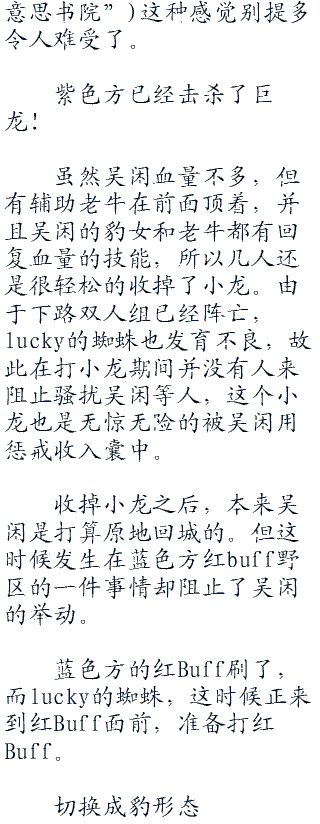 意思书院”)这种感觉别提多
令人难受了。
紫色方已经击杀了巨
龙!
虽然吴闲血量不多，但
有辅助老牛在前面顶着，并
且吴闲的豹女和老牛都有回
复血量的技能，所以几人还
是很轻松的收掉了小龙。由
于下路双人组已经阵亡，
lucky的蜘蛛也发育不良，故
此在打小龙期间并没有人来
阻止骚扰吴闲等人，这个小
龙也是无惊无险的被吴闲用
惩戒收入囊中。
收掉小龙之后，本来吴
闲是打算原地回城的。但这
时候发生在蓝色方红buff野
区的一件事情却阻止了吴闲
的举动。
蓝色方的红Buff刷了，
而lucky的蜘蛛，这时候正来
到红Buff面前，准备打红
Buff。
切换成豹形态